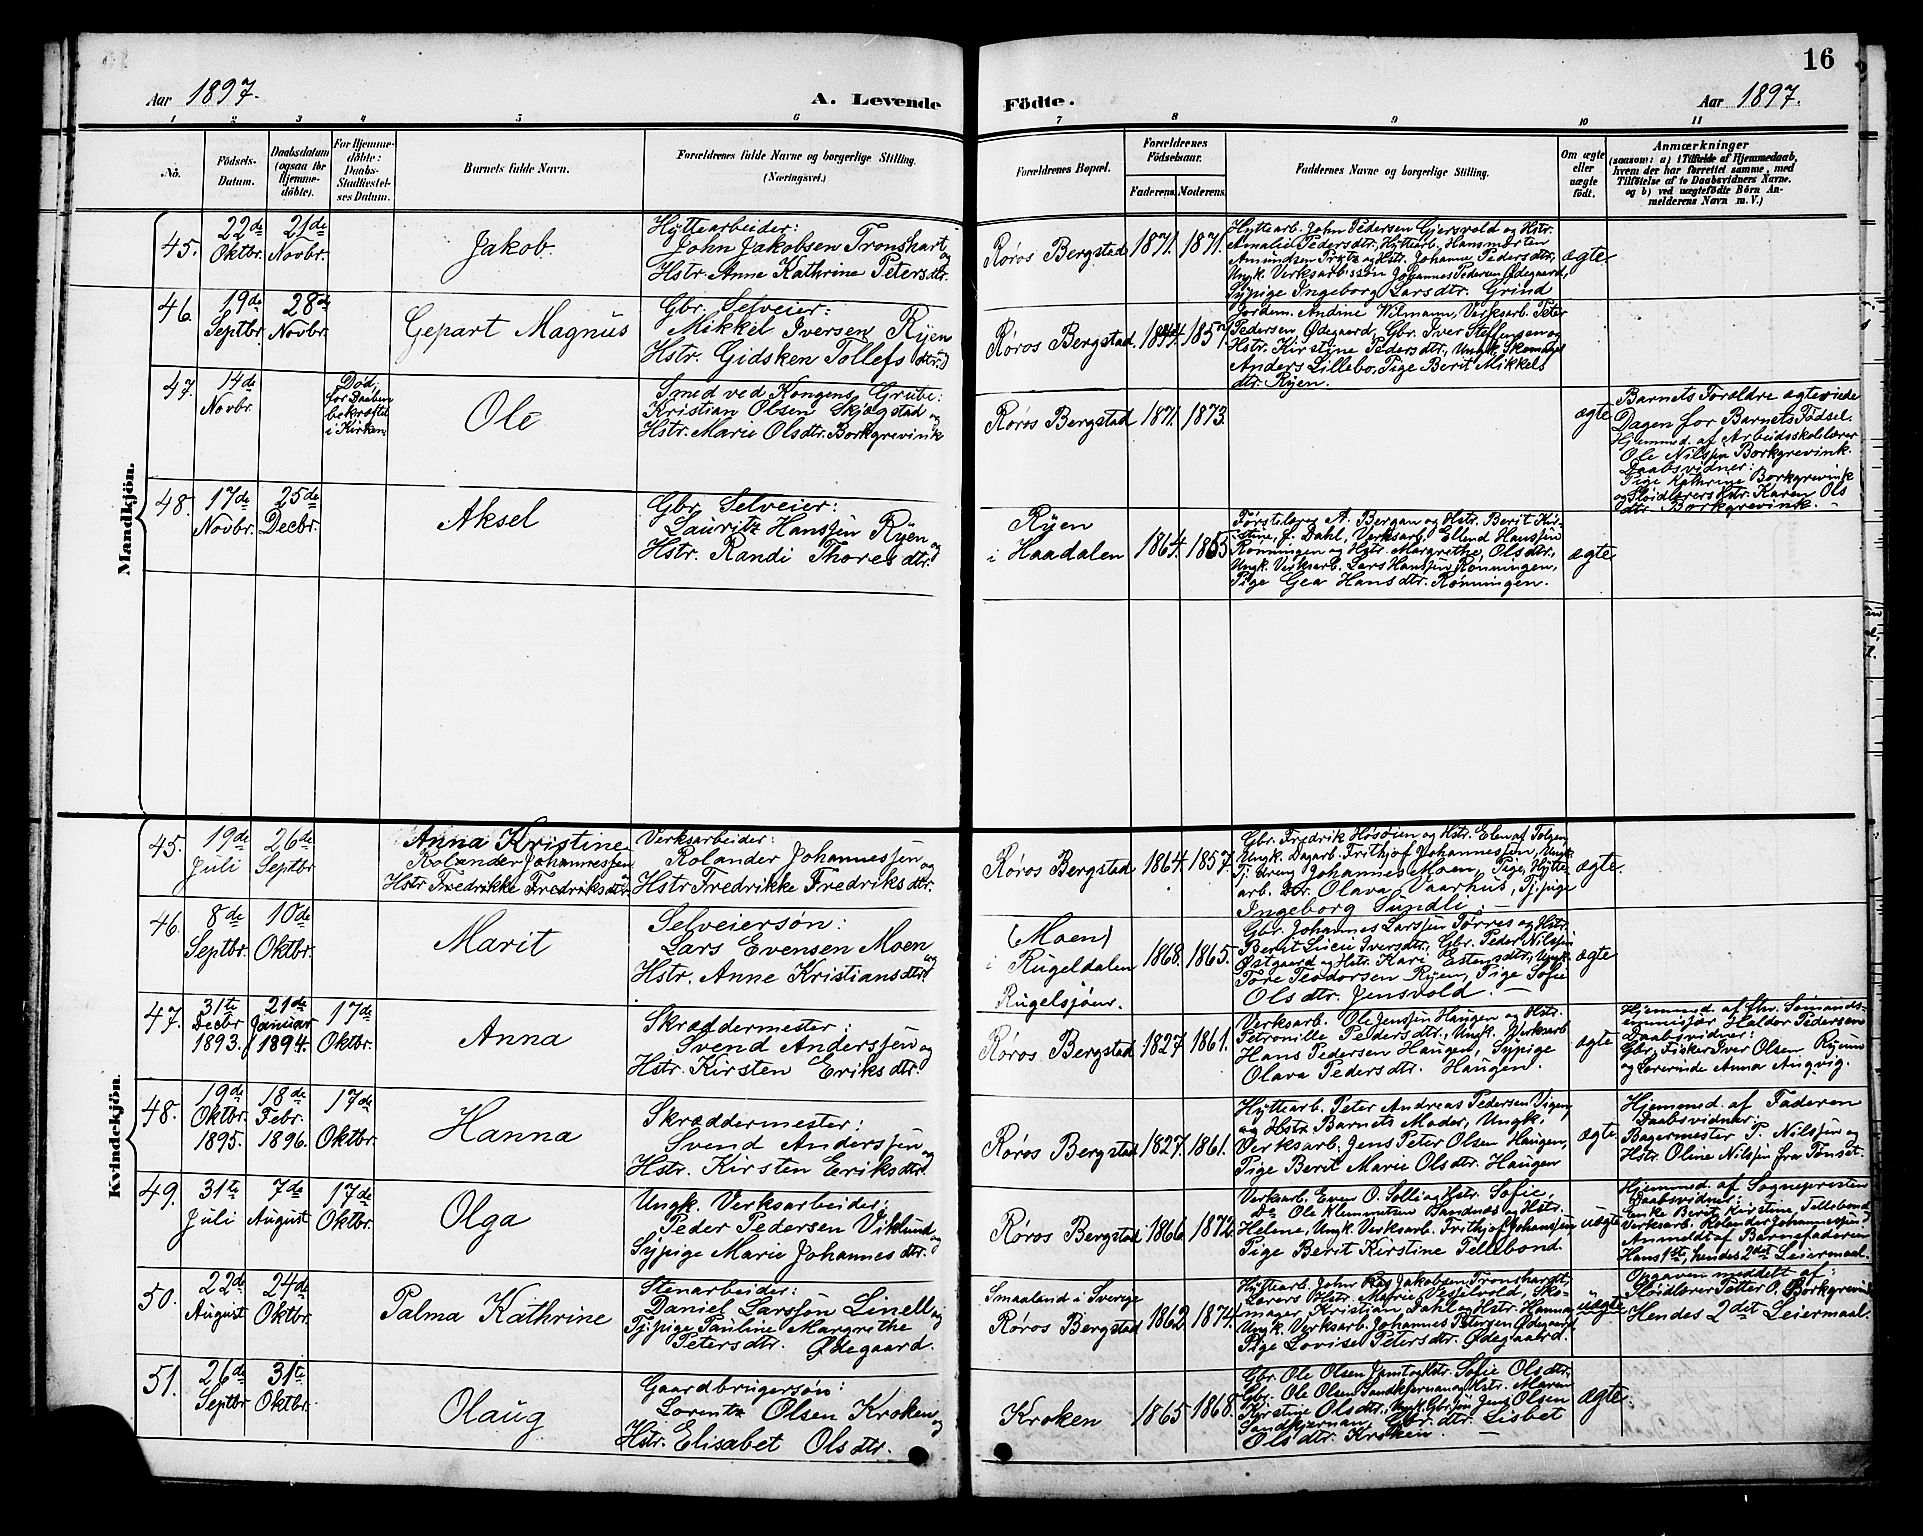 16
Aar 1897.
A. Levende
Födte.
Aar 1897.
1
2
3
4
5
6
7
8
9
10
11
No.
Födsels-Datum.
Daabsdatum (ogsaa for Hjemme-döbte).
For Hjemme-döbte: Daabs-Stadfæstel-ses Datum.
Barnets fulde Navn.
Forældrenes fulde Navne og borgerlige Stilling.
(Næringsvei.)
Forældrenes Bopæl.
Forældrenes Födselsaar.
Faderens.
Moderens.
Faddernes Navne og borgerlige Stilling.
Om ægte eller uægte födt.
Anmærkninger
(saasom: a) i Tilfælde af Hjemmedaab,
hvem der har forrettet samme, med
Tilföielse af to Daabsvidners Navne.
og b) ved uægtefödte Börn An-
melderens Navn m. V.)
Mandkjön.
45.
22de Oktbr.
21de Novbr.
Jakob
Hyttearbeider:
John Jakobsen Tronshart og
Hstr. Anne Kathrine Petersdtr.
Røros Bergstad
1871.
1871.
Hyttearb. John Pedersen Gjersvold og Hstr.
Amalie Pedersdtr, Hyttearb. Hansmorten
Amundsen Prytz og Hstr. Johanne Pedersdtr,
Ungk. Verksarb Johannes Pedersen Ødegaard,
Sypige Ingeborg Larsdtr. Grind
ægte
46.
19de Septbr
28de Novbr.
Gepart Magnus
Gbr. Selveier:
Mikkel Iversen Ryen
Hstr. Gidsken Tollefsdtr.
Røros Bergstad.
1844.
1857.
Jordem. Andrine Wilmann, Verksarb. Peter
Pedersen Ødegaard, Gbr. Iver Steffensen og
Hstr. Kirstine Pedersdtr, Ungk.
Anders Lillebo, Pige Berit Mikkels
dtr. Ryen.
47.
14de Novbr.
Død,
før Daaben
bekræftet
i Kirken
Ole
Smed ved Kongens Grube:
Kristian Olsen Skjølstad og
Hstr. Marie Olsdtr. Borkgrevink
Røros Bergstad
1871.
1873.
ægte
Barnets Forældre ægteviede
Dagen før Barnets Fødsel.
Hjemmed. af Arbeidsskolelærer
Ole Nilssen Borkgrevink.
Daabsvidner:
Pige Kathrine Borkgrevink
og Sløidlærers Hstr. Karen Ols
dtr. Borkgrevink.
48.
17de Novbr.
25de Decbr.
Aksel
Gbr. Selveier:
Lauritz Hanssen Ryen og
Hstr. Randi Thoresdtr.
Ryen
i Haadalen
1864.
1865
Førstelærer A. Bergan og Hstr. Berit Kir-
stine, f. Dahl, Verksarb. Ellend Hanssen
Rønningen og Hstr. Margrethe Olsdtr.,
Ungk. Verksarb. Lars Hanssen Rønningen,
Pige Gea Hansdtr. Rønningen.
ægte
Kvindekjön.
45.
19de Juli
26de Septbr
Anna Kristine
Rolander Johannessen
Hstr Fredrikke Fredriksdtr.
Verksarbeider:
Rolander Johannessen og
Hstr Fredrikke Fredriksdtr.
Røros Bergstad
1864.
1857.
Gbr. Fredrik Høsøien og Hstr. Elen af Tolgen
Ungk. Dagarb. Frithjof Johannessen, Ungk.
Tj.dreng Johannes Moen, Pige, Hytte-
arb. Dtr. Olava Vaarhus, Tj.pige
Ingeborg Sundli.
ægte.
46.
8de Septbr.
10de Oktbr.
Marit
Selveiersøn:
Lars Evensen Moen og
Hstr. Anne Kristiansdtr.
(Moen)
i Rugeldalen
Rugelsjøen.
1868.
1865.
Gbr. Johannes Larssen Tørres og Hstr.
Berit Lucie Iversdtr, Gbr. Peder Nilssen
Østgaard og Hstr. Kari Estensdtr, Ungk.
Tore Teodorsen Ryen, Pige Sofie
Olsdtr. Jensvold.
ægte
47.
31te Decbr 1893.
21de Januar 1894.
17de Oktbr.
Anna
Skræddermester:
Svend Anderssen og
Hstr. Kirsten Eriksdtr.
Røros Bergstad
1827
1861.
Verksarb. Ole Jenssen Haugen og Hstr.
Petronille Pedersdtr, Ungk. Verksarb
Hans Pedersen Haugen, Sypige
Olava Pedersdtr. Haugen.
ægte
Hjemmed. af Chr. Sømands-
emissær Haldor Pedersen
Daabsvidner:
Gbr. Fisker Iver Olsen
og Lærerinde Anna Angvig.
48.
19de Oktbr. 1895.
18de Febr. 1896.
17de Oktbr.
Hanna
Skræddermester:
Svend Anderssen og
Hstr. Kirsten Eriksdtr.
Røros Bergstad
1827.
1861.
Hyttearb. Peter Andreas Pedersen Vigen,
og Hstr. Barnets Moder, Ungk.
Verksarb. Jens Peter Olsen Haugen,
Pige Berit Marie Olsdtr. Haugen
ægte
Hjemmed. af Faderen
Daabsvidner:
Bagermester P. Nilssen og
Hstr. Oline Nilssen fra Tønset.
49.
31te Juli
7de August
17de Oktbr.
Olga
Ungk. Verksarbeider:
Peder Pedersen Viklund og
Sypige Marie Johannesdtr.
Røros Bergstad
1866
1872.
Verksarb. Even O. Solli og Hstr. Sofie,
Do Ole Klemmetsen Sandnæs og Hstr.
Helene, Ungk. Verksarb. Frithjof Johanssen,
Pige Berit Kirstine Tellebond.
uægte
Hjemmed. af Sognepresten
Daabsvidner:
Enke Berit Kirstine Tellebond,
Verksarb. Rolander Johannessen.
Anmeldt af Barnefaderen
Hans 1ste, hendes 2det Leiermaal.
50.
22de August
24de Oktbr.
Palma Kathrine
Stenarbeider:
Daniel Larssøn Linell og
Tj.pige Pauline Margrethe
Petersdtr. Ødegaard.
Smaaland i Sverige
Røros Bergstad
1862
1874.
Hyttearb. John Jakobsen Tronshardt,
Lærers Hstr. Marie Jessevold, Sko-
mager Kristian Dahl og Hstr. Hanna,
Ungk. Verksarb. Johannes Petersen Ødegaard
Pige Lovise Petersdtr. Ødegaard.
uægte
Opgaven meddelt af:
Sløidlærer Petter O. Borkgrevink
Hendes 2det Leiermaal.
51.
26de Septbr
31te Oktbr.
Olaug
Gaardbrugersøn:
Lorentz Olsen Kroken og
Hstr. Elisabet Olsdtr.
Kroken
1865
1868.
Gbr. Ole Olsen og Hstr. Sofie Olsdtr,
Gbr. Ole Olsen Sandkjernan og Hstr. Maren
Kirstine Olsdtr., Ungk. Gbr.søn Jens Olsen
Sandkjernan, Gbr. dtr. Lisbet
Olsdtr. Kroken.
ægte.